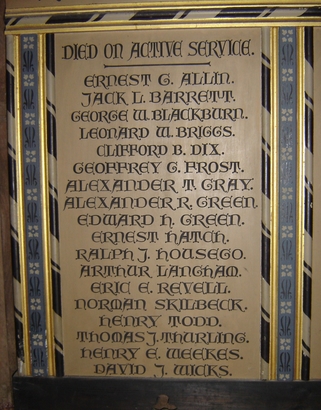 DIED ON ACTIVE SERVICE.
ERNEST G. ALLIN.
JACK L. BARRETT.
GEORGE W. BLACKBURN.
LEONARD W. BRIGGS.
CLIFFORD B. DIX.
GEOFFREY C. FROST.
ALEXANDER T. GRAY.
ALEXANDER R. GREEN.
EDWARD H. GREEN.
ERNEST HATCH.
RALPH J. HOUSEGO.
ARTHUR LANGHAM.
ERIC E. REVELL.
NORMAN SKILBECK.
HENRY TODD.
THOMAS J. THURLING.
HENRY E. WEEKES.
DAVID J. WICKS.